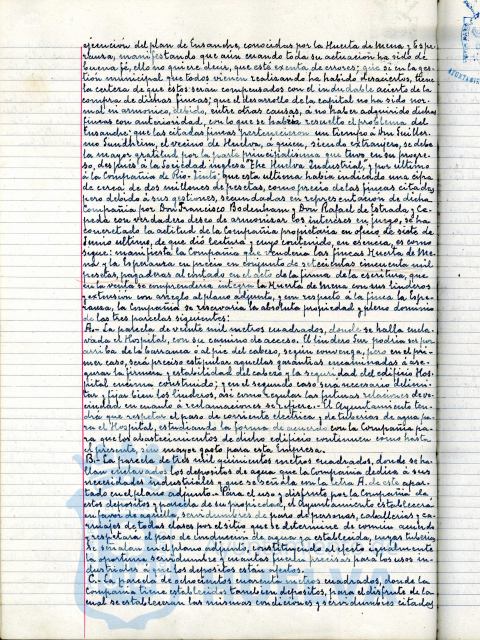 ejecución del plan de Ensanche, conocidas por la Huerta de Mena y Espe-
ranza, manifestando que aún cuando toda su actuación ha sido de
buena fé, ello no quiere decir, que esté exenta de errores; que si en la ges-
tión municipal que todos vienen realizando ha habido desaciertos, tiene
la certeza de que estos serán compensados con el indudable acierto de la
compra de dichas fincas; que el desarrollo de la capital no ha sido nor-
mal ni armónico, debido, entre otras causas, a no haber adquirido dichas
fincas con anterioridad, con lo que se habría resuelto el problema del
Ensanche; que las citadas fincas pertenecieron un tiempo á Don Guiller-
mo Sundheim, el vecino de Huelva, á quien, siendo extranjero, se debe
la mayor gratitud por la parte principalísima que tuvo en su progre-
so, después á la Sociedad inglesa "The Huelva Industrial, y por último
á la Compañía de Rio-Tinto; que esta última había indicado una cifra
de cerca de dos millones de pesetas, como precio de las fincas citadas,
pero debido á sus gestiones, secundadas en representación de dicha
Compañía por Don Francisco Bodenham y Don Rafael de Estrada y Ca-
con verdadero deseo de armonizar los intereses en juego, se ha
concretado la actitud de la Compañía propietaria en oficio de siete de
Junio último, de que dió lectura y cuyo contenido, en esencia, es como
sigue: manifiesta la Compañía que vendería las fincas Huerta de Me-
na y la Esperanza en precio en conjunto de setecientas cincuenta mil
pesetas, pagaderas al contado en el acto de la firma de la escritura, que
en la venta se comprendería íntegra la Huerta de Mena con sus linderos
y extensión con arreglo al plano adjunto, y en respecto á la finca la Espe-
ranza, la Compañía se reservaría la absoluta propiedad y pleno dominio
de las tres parcelas siguientes:
A.- La parcela de veinte mil metros cuadrados, donde se halla encla-
vada el Hospital, con su camino de acceso. El lindero Sur podría ser por
arriba de la barranca o al pié del cabezo, según convenga, pero en el pri-
mer caso, será preciso estipular aquellas garantías encaminadas á ase-
gurar la firmeza y estabilidad del cabezo y la seguridad del edificio Hos-
pital encima construido; y en el segundo caso será necesario delimi-
tar y fijar bien los linderos, así como regular las futuras relaciones de ve-
cindad en cuanto á reclamaciones se refiere.- El Ayuntamiento ten-
drá que respetar el paso de corriente eléctrica y de tuberías de agua pa-
ra el Hospital, estudiando la forma de acuerdo con la Compañía pa-
ra que los abastecimientos de dicho edificio continuen como hasta
el presente, sin mayor gasto para esta Empresa.
B.- La parcela de tres mil quinientos metros cuadrados, donde se ha-
llan enclavados los depósitos de agua que la Compañía dedica á sus
necesidades industriales y que se señala con la letra A. de este apar-
tado en el plano adjunto.- Para el uso y disfrute por la Compañía de
estos depósitos y parcela de su propiedad, el Ayuntamiento establecerá
en favor de aquella, servidumbre de paso de personas, caballerías y ca-
rruajes de todas clases por el sitio que se determine de común acuerdo
y respetará el paso de conducción de agua ya establecida, cuyas tuberías
se señalan en el plano adjunto, constituyendo al efecto igualmente
la oportuna servidumbre y cuantas fueran precisas para los usos in-
dustriales á que los depósitos están afectos.
C.- La parcela de ochocientos cuarenta metros cuadrados, donde la
Compañía tiene establecidos tambien depósitos, para el disfrute de la
cual se establecerán las mismas condiciones y servidumbres citadas